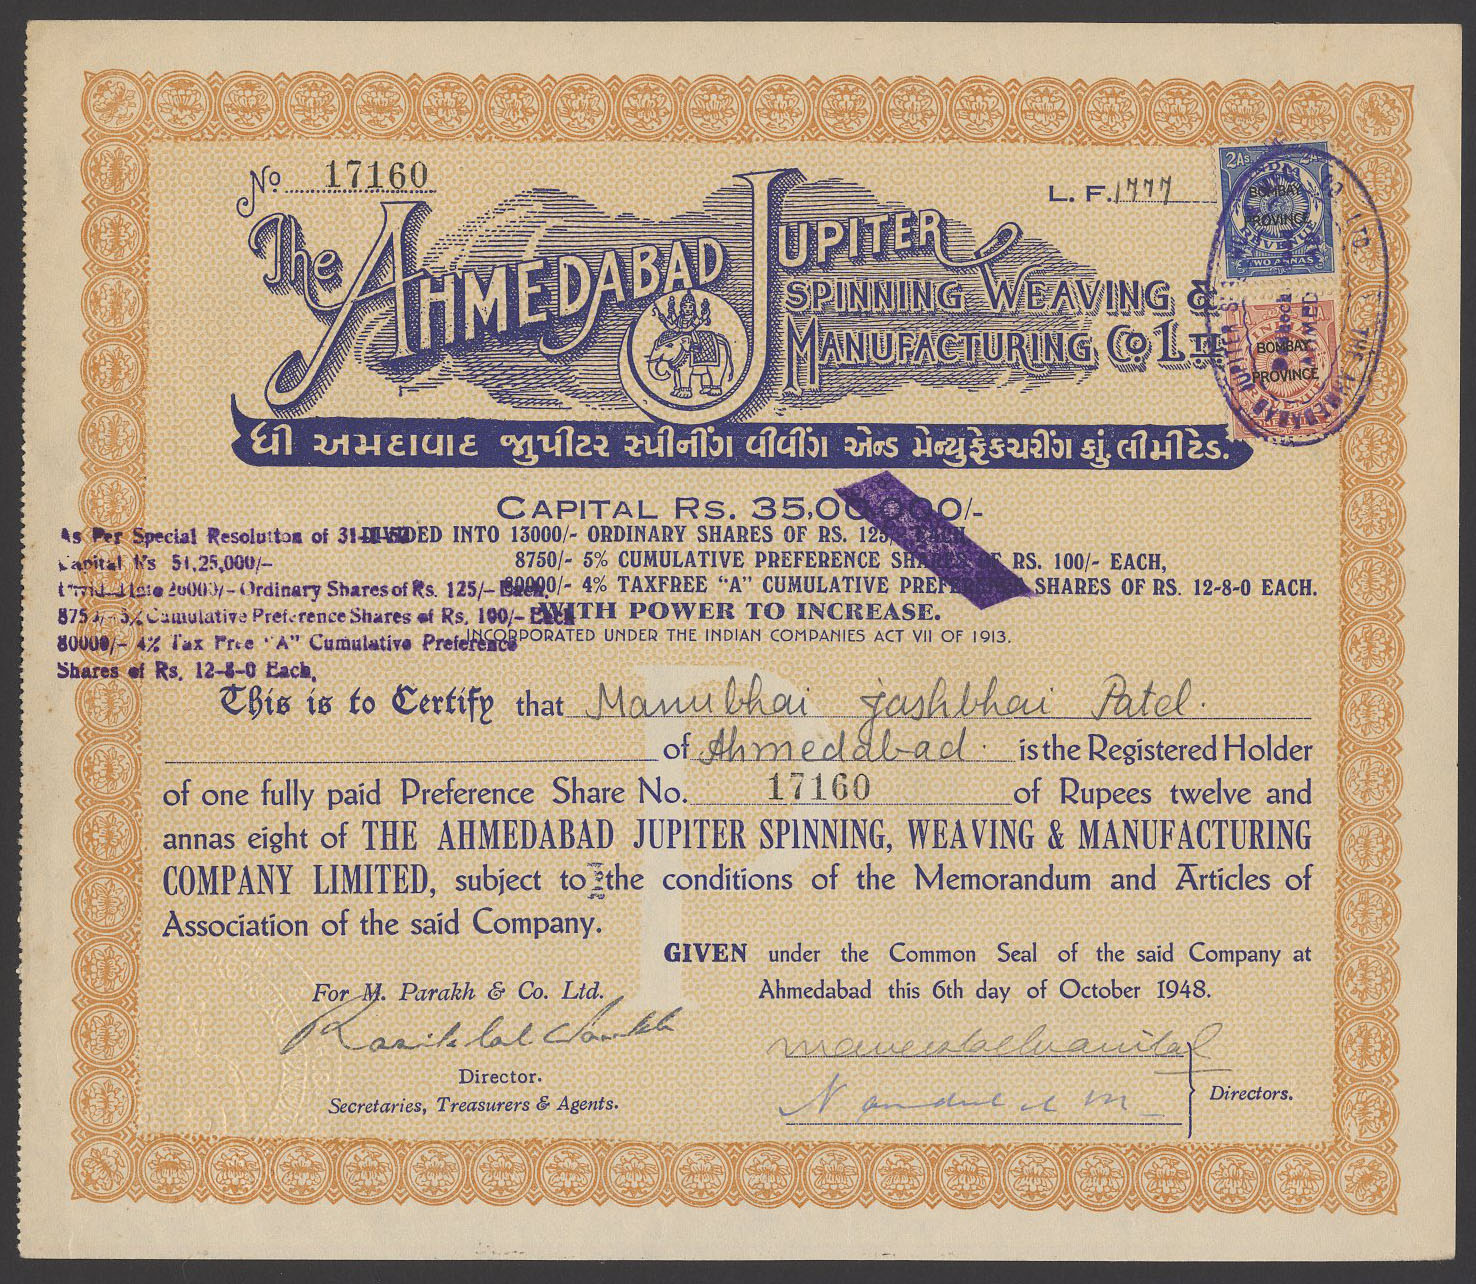 No 17160
L. F. 1777
The AHMEDABAD JUPITER
SPINNING WEAVING &
MANUFACTURING CO LTD.
ધી અમદાવાદ જીુપીટર સ્પીનીંગ વીવીંગ એન્ડ મેન્યુફેકચરીંગ કાું. લીમીટેડ.
2AS. 2AS.
BOMBAY
PROVINCE
REVENUE
TWO ANNAS
INDIA
BOMBAY
PROVINCE
CAPITAL RS. 35,00,000/-
DIVIDED INTO 13000/- ORDINARY SHARES OF RS. 125/- EACH
8750/- 5% CUMULATIVE PREFERENCE SHARES OF RS. 100/- EACH,
80000/- 4% TAXFREE "A" CUMULATIVE PREFERENCE SHARES OF RS. 12-8-0 EACH.
WITH POWER TO INCREASE.
INCORPORATED UNDER THE INDIAN COMPANIES ACT VII OF 1913.
As Per Special Resolution of
Capital Rs 51,25,000/-
26000/- Ordinary Shares of Rs. 125/- Each.
8750/- 5% Cumulative Preference Shares of Rs. 100/- Each
80000/- 4% Tax Free "A" Cumulative Preference
Shares of Rs. 12-8-0 Each.
This is to Certify that Manubhai Jashbhai Patel.
of Ahmedabad. is the Registered Holder
of one fully paid Preference Share No. 17160 of Rupees twelve and
annas eight of THE AHMEDABAD JUPITER SPINNING, WEAVING & MANUFACTURING
COMPANY LIMITED, subject to the conditions of the Memorandum and Articles of
Association of the said Company.
GIVEN under the Common Seal of the said Company at
Ahmedabad this 6th day of October 1948.
For M. Parakh & Co. Ltd.
Rasiklal Parakh
Director.
Secretaries, Treasurers & Agents.
Directors.